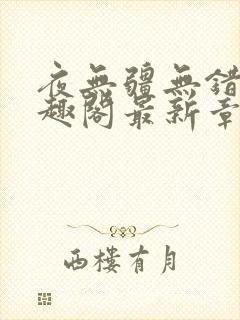 夜無疆無錯
趣閣最新章
西樓有月